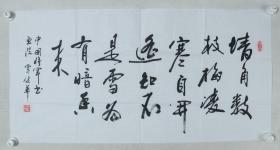 墙角数
枝梅凌
寒自开
遥知不
是雪为
有暗香
来
中国将军书
画院